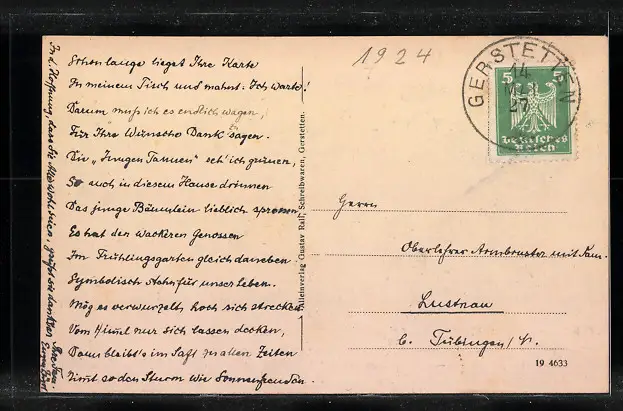 Schon lange lieget Ihre Karte
In meinem Tisch und mahnt: Ich warte!
Darum muß ich es endlich wagen,
Für Ihre Wünsche Dank zu sagen.
Die „Jungen Tannen" seh' ich grünen.
So auch in diesem Hause drinnen
Das junge Bäumlein lieblich sprossen
Es hat den wackeren Genossen
Im Frühlingsgarten gleich daneben
Symbolisch steh's für unser Leben.
Mög es verwurzelt, hoch sich strecken
Vom Himmel nur sich lassen decken,
Dann bleibt's im Saft zu allen Zeiten
Nimmt so den Sturm wie Sonnenfreuden.
In d. Hoffnung, dass Sie Alle wohl seien, grüßt Sie dankbar
Ihre
Alleinverlag Gustav Rall, Schreibwaren, Gerstetten.
1924
GERSTETTEN
14
27
5 5
Deutsches
Reich
Herrn
Oberlehrer Armbruster mit Fam.
Lustnau
b. Tübingen/N.
19 4633